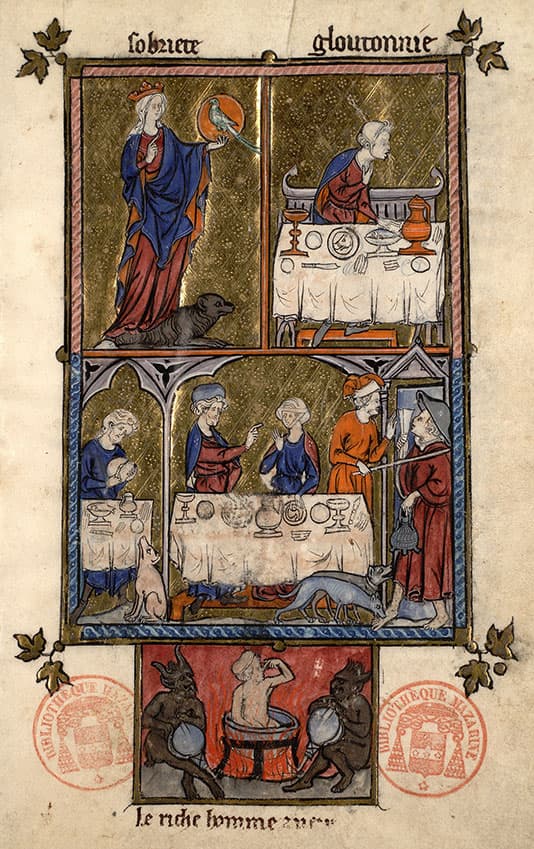 sobriete gloutonnie
BIBLIOTHEQUE MAZARINE
BIBLIOTHEQUE MAZARINE
le riche homme